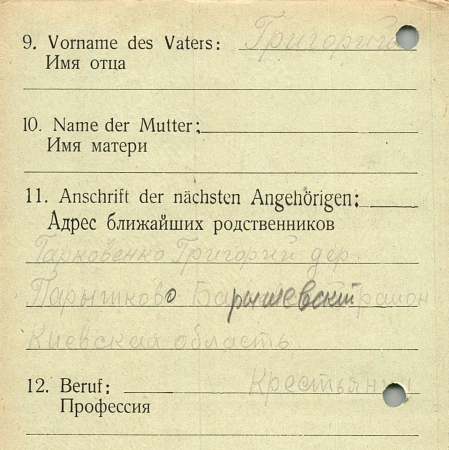 9. Vorname des Vaters: Григорий
Имя отца
10. Name der Mutter:
Имя матери
11. Anschrift der nächsten Angehörigen:
Адрес ближайших родственников
Тарковенко Григорий дер.
Парышково Барышевский район
Киевская область.
12. Beruf: Крестьянин
Профессия